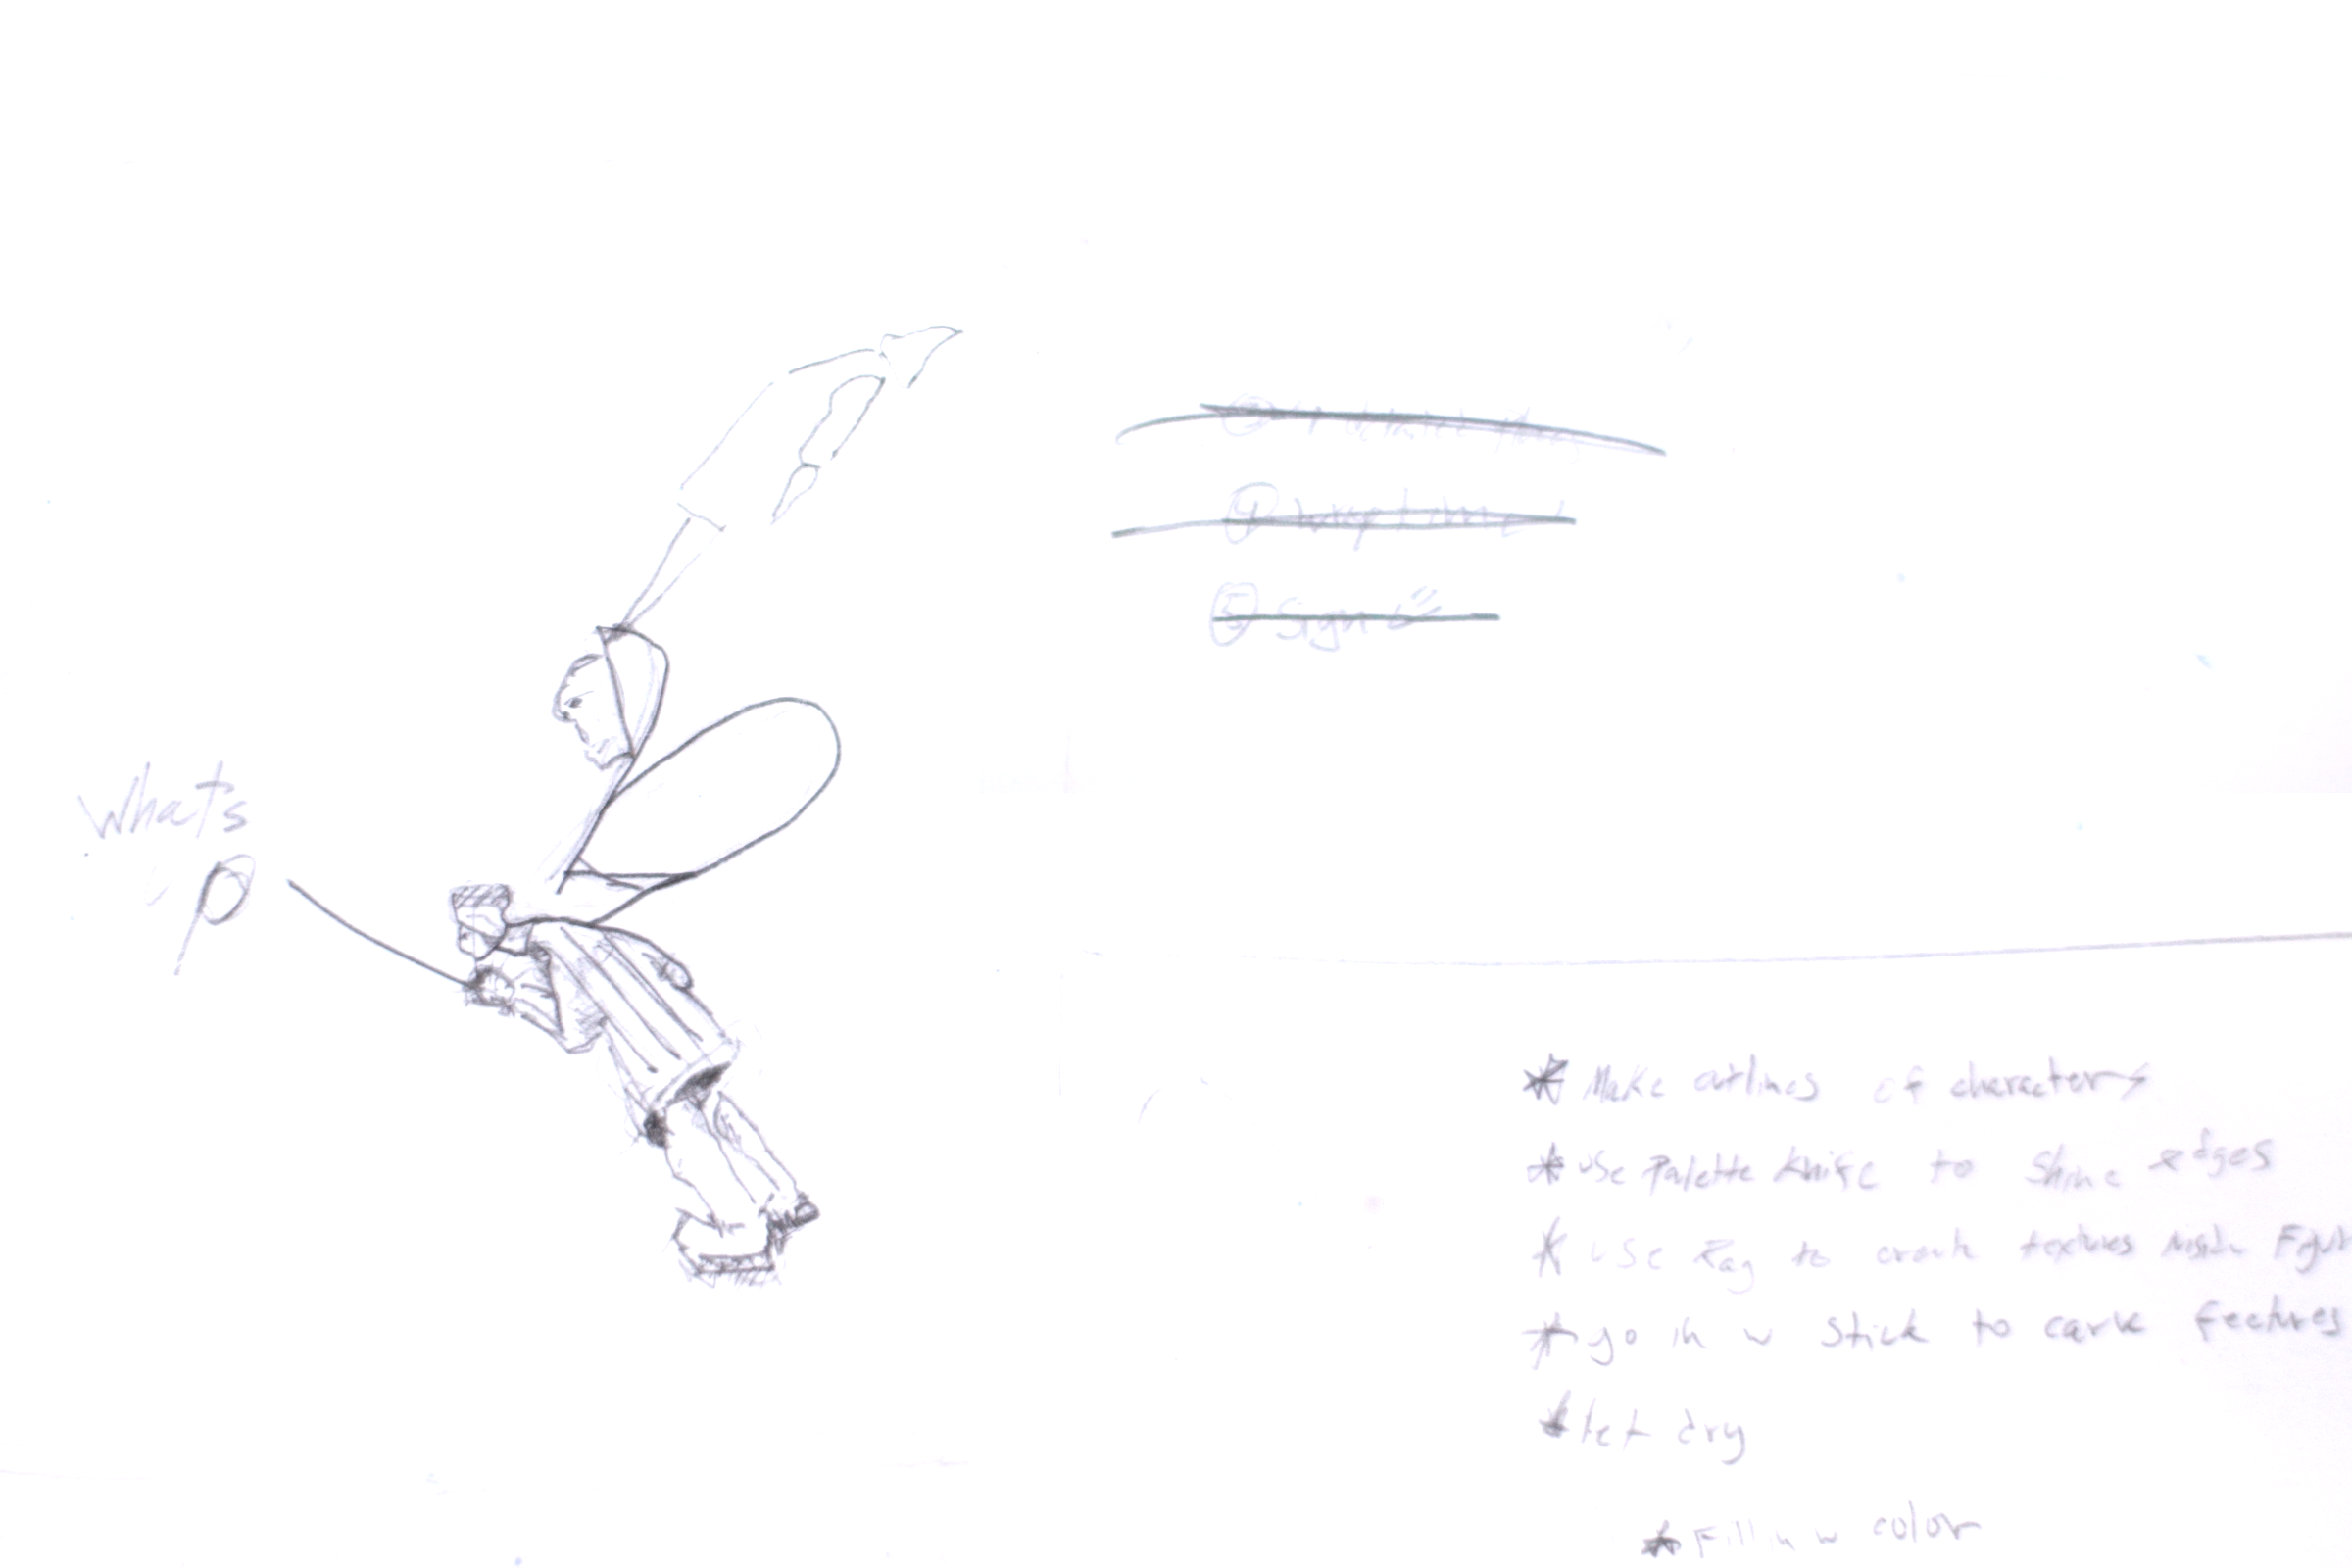 What's
P
④
⑤ Sign
* Make outlines of characters
* use Palette Knife to Shine edges
* use Rag to create textures inside Figur
* go in w stick to carve features
* let dry
* Fill in w color